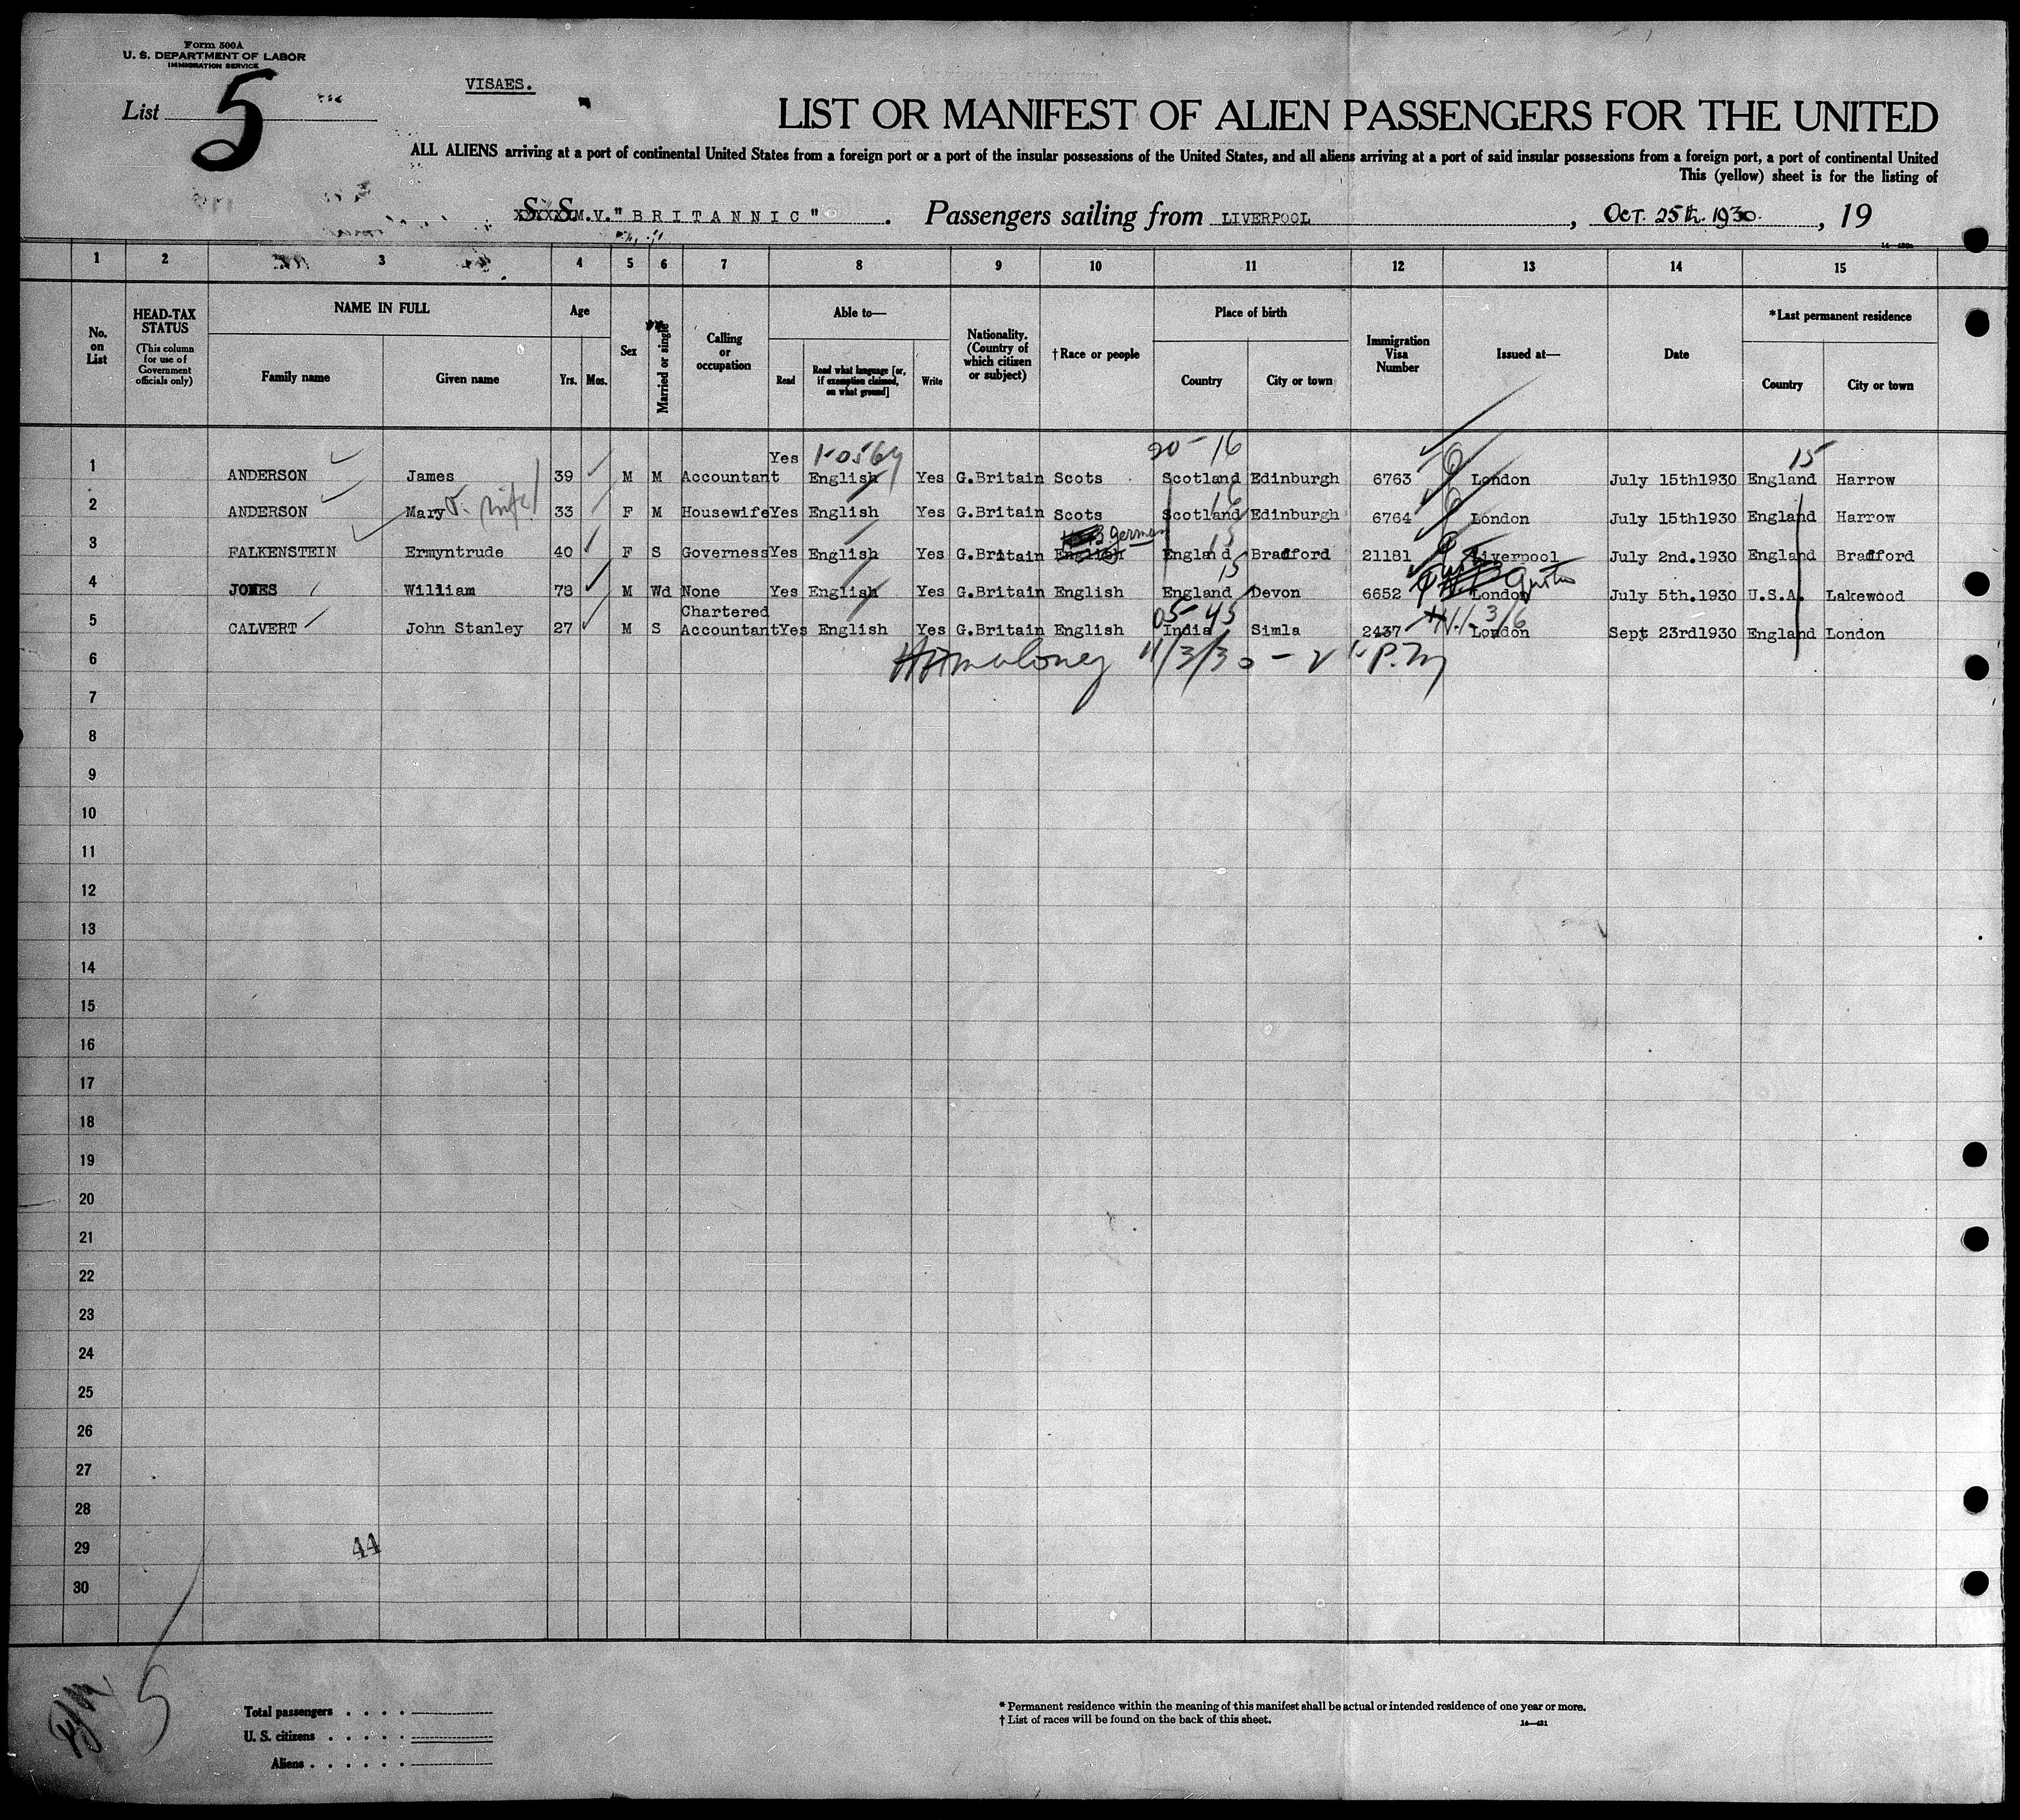 Form 500A
U. S. DEPARTMENT OF LABOR
IMMIGRATION SERVICE
List 5
VISAES.
LIST OR MANIFEST OF ALIEN PASSENGERS FOR THE UNITED
ALL ALIENS arriving at a port of continental United States from a foreign port or a port of the insular possessions of the United States, and all aliens arriving at a port of said insular possessions from a foreign port, a port of continental United
This (yellow) sheet is for the listing of
S. S. M.V."BRITANNIC". Passengers sailing from LIVERPOOL, Oct. 25th. 1930., 19
1 2 3 4 5 6 7 8 9 10 11 12 13 14 15
No. on List
HEAD-TAX STATUS
(This column for use of Government officials only)
NAME IN FULL
Family name Given name
Age
Yrs. Mos.
Sex
Married or single
Calling or occupation
Able to—
Read
Read what language [or, if exemption claimed, on what ground]
Write
Nationality. (Country of which citizen or subject)
† Race or people
Place of birth
Country City or town
Immigration Visa Number
Issued at—
Date
*Last permanent residence
Country City or town
20-16 15
1 ANDERSON James 39 M M Accountant Yes English Yes G.Britain Scots Scotland Edinburgh 6763 London July 15th1930 England Harrow
2 ANDERSON Mary wife 33 F M Housewife Yes English Yes G.Britain Scots Scotland 16 Edinburgh 6764 London July 15th1930 England Harrow
German
3 FALKENSTEIN Ermyntrude 40 F S Governess Yes English Yes G.Britain English England 15 Bradford 21181 Liverpool July 2nd.1930 England Bradford
4 JONES William 78 M Wd None Yes English Yes G.Britain English England 15 Devon 6652 London July 5th.1930 U.S.A. Lakewood
05-45
5 CALVERT John Stanley 27 M S Chartered Accountant Yes English Yes G.Britain English India Simla 2437 London Sept 23rd1930 England London
6 11/3/30
7
8
9
10
11
12
13
14
15
16
17
18
19
20
21
22
23
24
25
26
27
28
29 44
30
5
Total passengers . . . .
U. S. citizens . . . . .
Aliens . . . . . .
* Permanent residence within the meaning of this manifest shall be actual or intended residence of one year or more.
† List of races will be found on the back of this sheet.